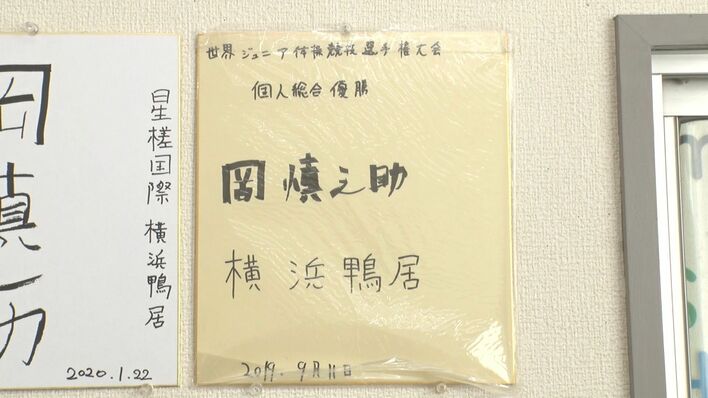 世界ジュニア体操競技選手権大会
個人総合優勝
岡慎之助
横浜鴨居
2019.9月11日
星槎国際 横浜鴨居
岡慎之助
2020.1.22